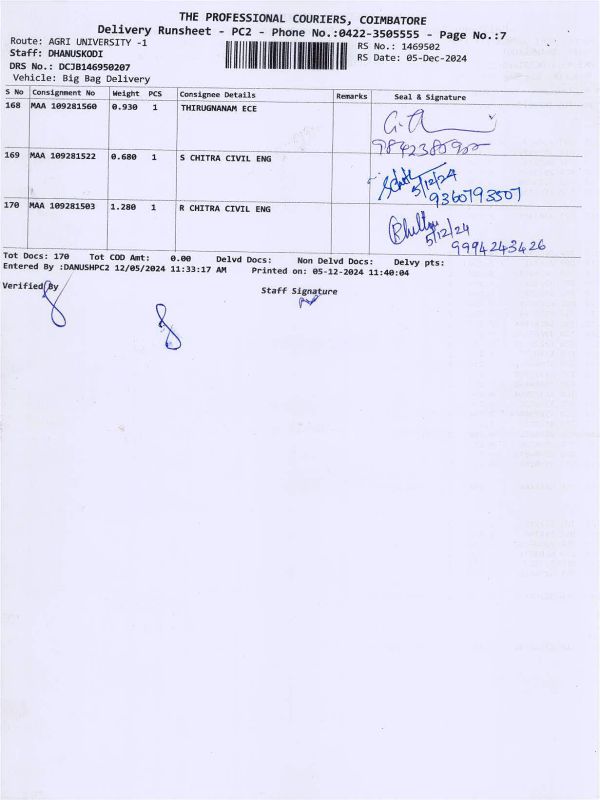 THE PROFESSIONAL COURIERS, COIMBATORE
Delivery Runsheet - PC2 - Phone No.:0422-3505555 - Page No.:7
Route: AGRI UNIVERSITY -1
RS No.: 1469502
Staff: DHANUSKODI
RS Date: 05-Dec-2024
DRS No.: DCJB146950207
Vehicle: Big Bag Delivery
S No Consignment No Weight PCS Consignee Details Remarks Seal & Signature
168 MAA 109281560 0.930 1 THIRUGNANAM ECE
169 MAA 109281522 0.680 1 S CHITRA CIVIL ENG
5/12/24
9360793507
170 MAA 109281503 1.280 1 R CHITRA CIVIL ENG
5/12/24
9994243426
Tot Docs: 170 Tot COD Amt: 0.00 Delvd Docs: Non Delvd Docs: Delvy pts:
Entered By :DANUSHPC2 12/05/2024 11:33:17 AM Printed on: 05-12-2024 11:40:04
Verified By
Staff Signature